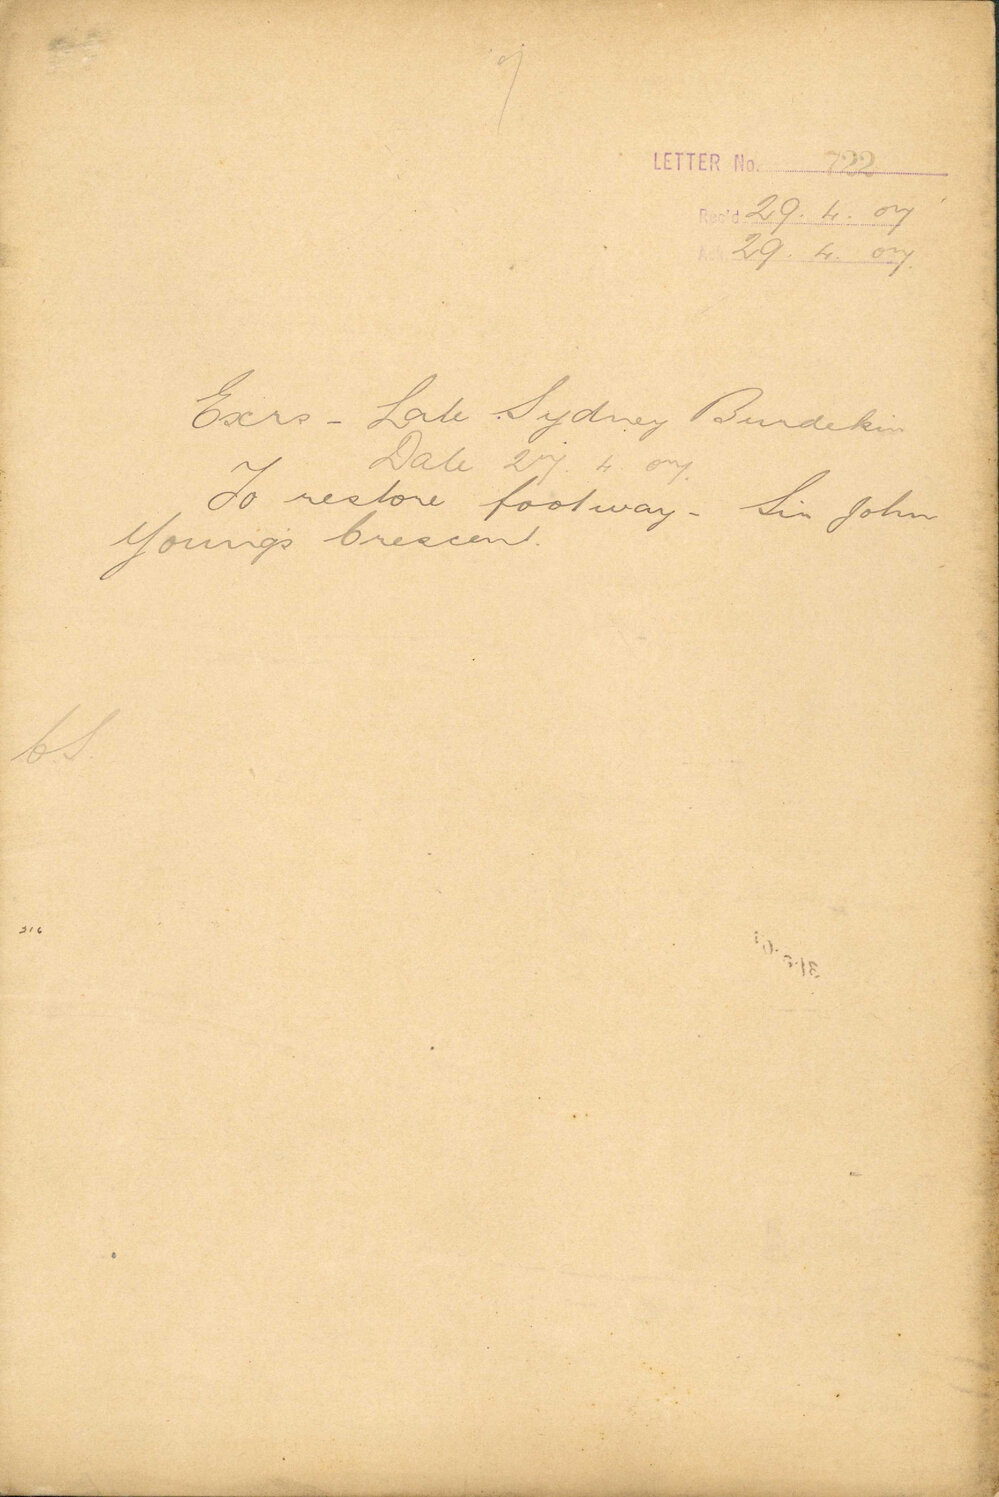 LETTER No. 722
Rec'd 29. 4. 07
Ack. 29. 4. 07
Exrs - Late Sydney Burdekin
Date 27. 4. 07
To restore footway - Sir John
Young's Crescent.
CS.
316